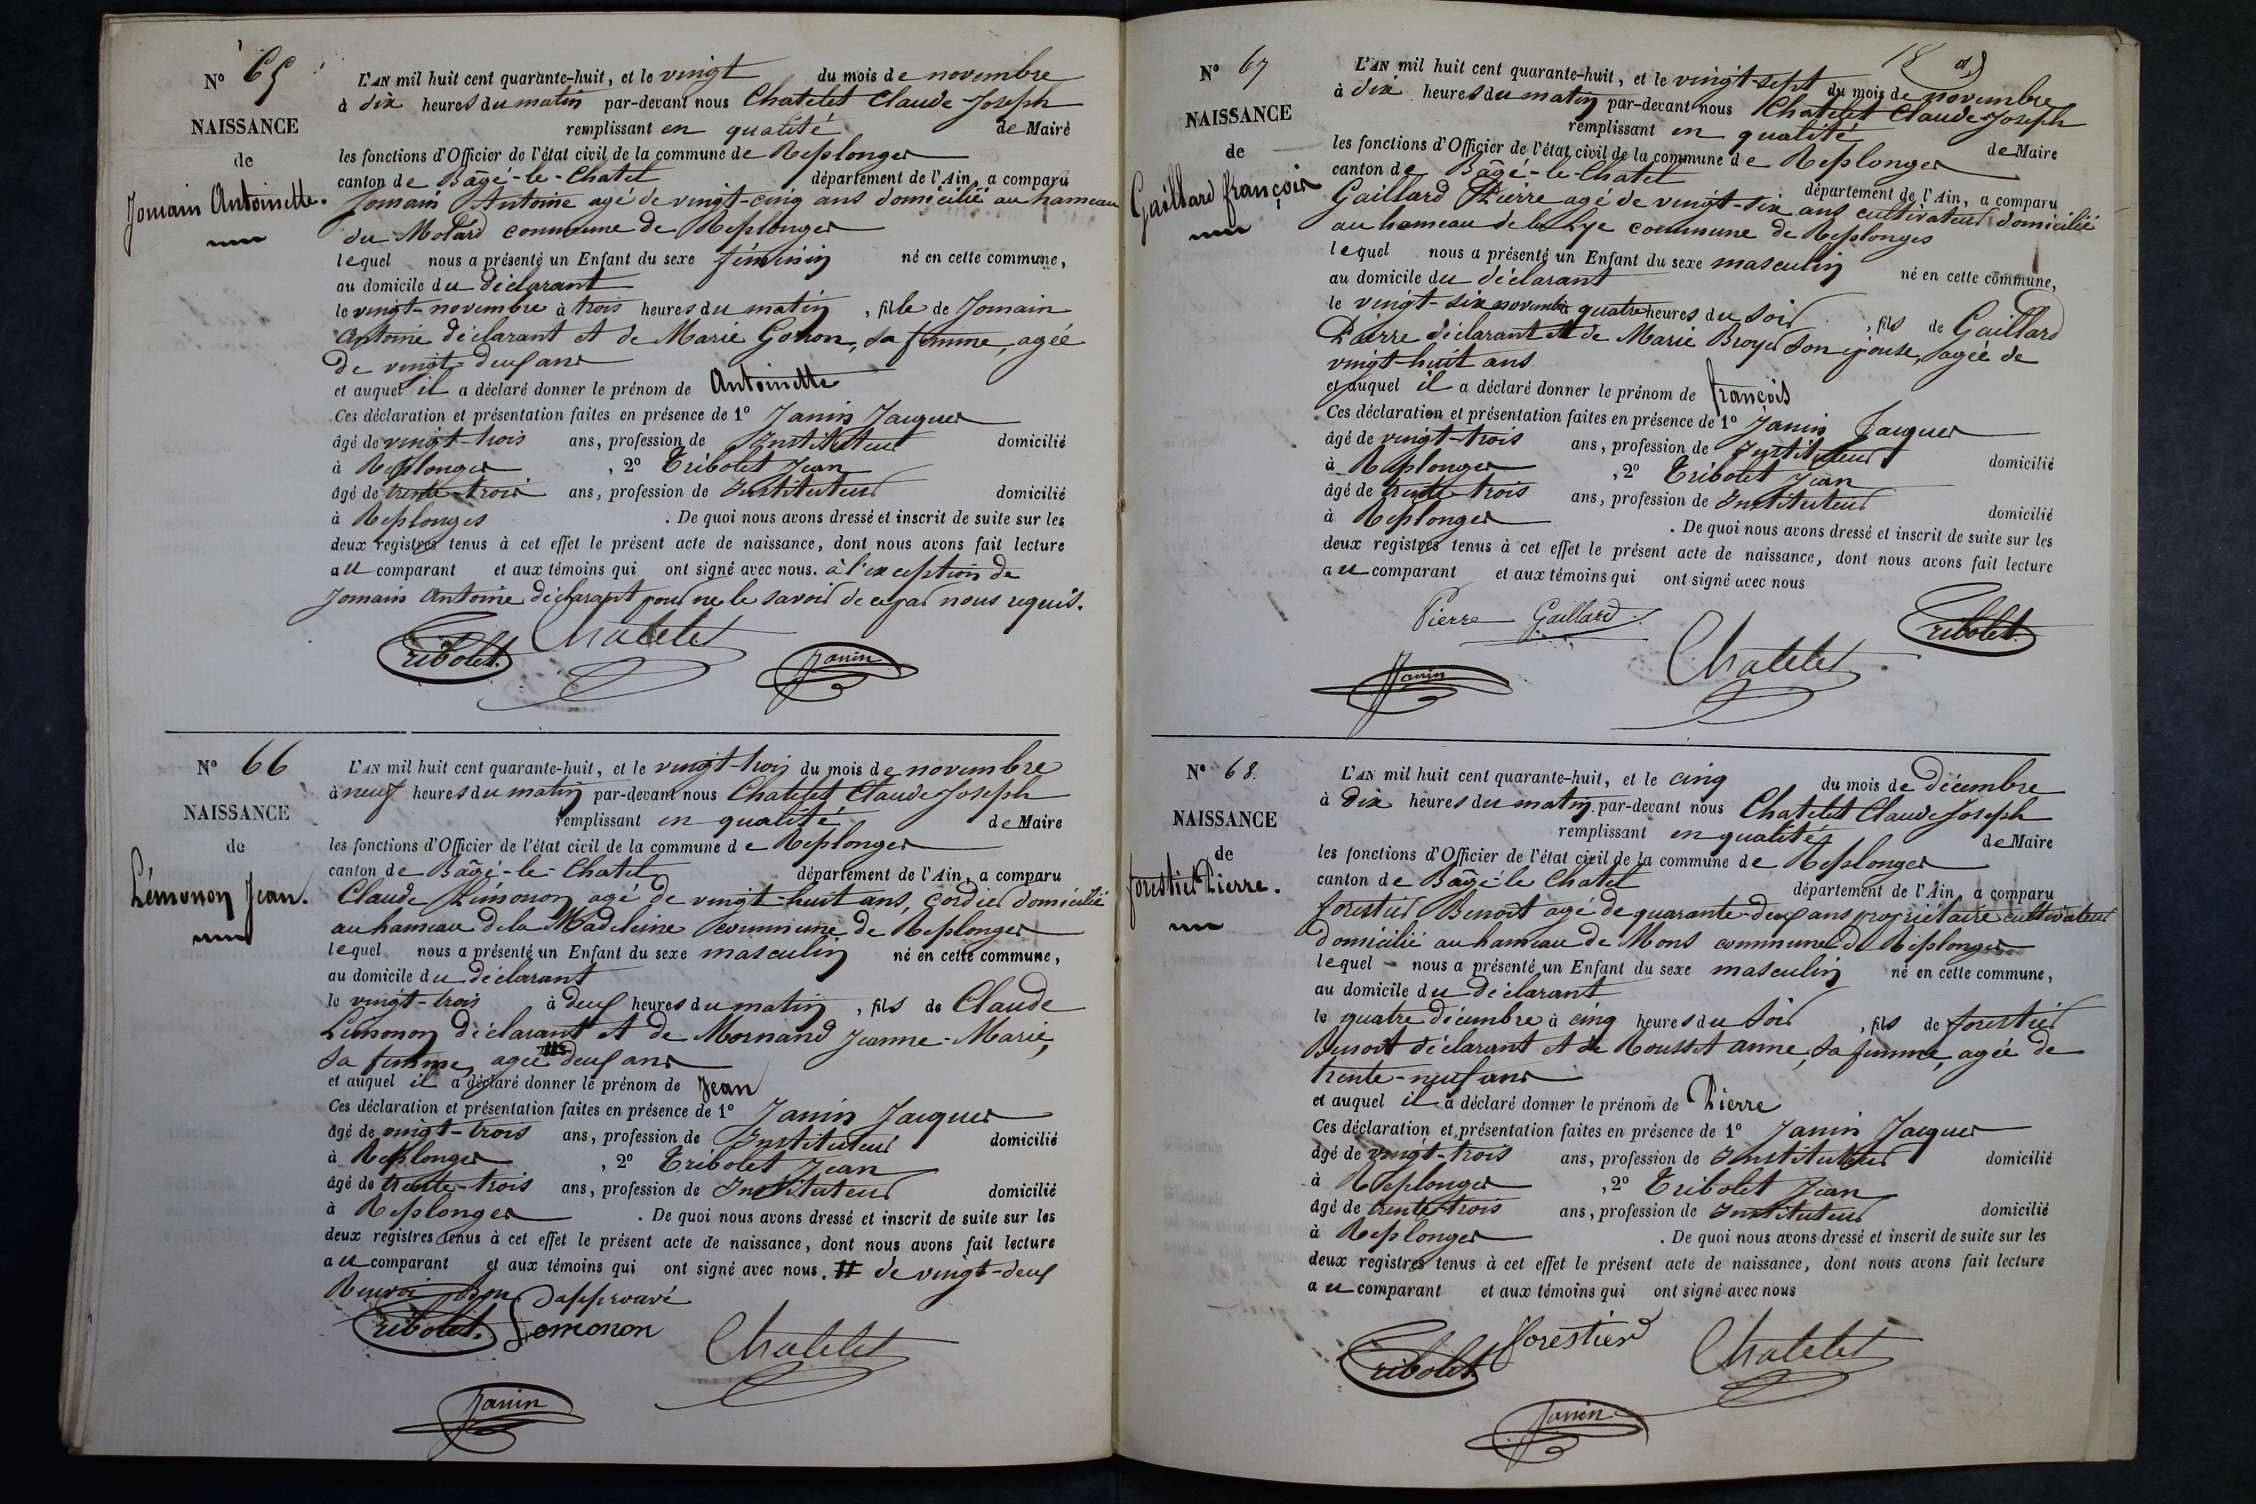 N° 65
NAISSANCE
de
Jomain Antoinette.
L'AN mil huit cent quarante-huit, et le vingt du mois de novembre
à dix heures du matin par-devant nous Chatelet Claude Joseph
remplissant en qualité de Maire
les fonctions d'Officier de l'état civil de la commune de Replonges
canton de Bâgé-le-Chatel département de l'Ain, a comparu
Jomain Antoine agé de vingt-cinq ans domicilié au hameau
du Motard commune de Replonges
lequel nous a présenté un Enfant du sexe féminin né en cette commune,
au domicile du déclarant
le vingt-novembre à trois heures du matin, fille de Jomain
Antoine déclarant et de Marie Gonon, sa femme, agée
de vingt-deux ans
et auquel il a déclaré donner le prénom de Antoinette
Ces déclaration et présentation faites en présence de 1° Janin Jacques
âgé de vingt-trois ans, profession de Instituteur domicilié
à Replonges, 2° Tribolet Jean
âgé de trente-trois ans, profession de Instituteur domicilié
à Replonges. De quoi nous avons dressé et inscrit de suite sur les
deux registres tenus à cet effet le présent acte de naissance, dont nous avons fait lecture
au comparant et aux témoins qui ont signé avec nous. à l'exception de
Jomain Antoine déclarant pour ne le savoir de ce par nous requis.
Tribolet. Chatelet Janin
N° 66
NAISSANCE
de
Lémonon Jean.
L'AN mil huit cent quarante-huit, et le vingt-trois du mois de novembre
à neuf heures du matin par-devant nous Chatelet Claude Joseph
remplissant en qualité de Maire
les fonctions d'Officier de l'état civil de la commune de Replonges
canton de Bâgé-le-Chatel département de l'Ain, a comparu
Claude Lémonon agé de vingt-huit ans, cordier domicilié
au hameau de la Madeleine commune de Replonges
lequel nous a présenté un Enfant du sexe masculin né en cette commune,
au domicile du déclarant
le vingt-trois à deux heures du matin, fils de Claude
Lemonon déclarant et de Mornand Jeanne-Marie,
sa femme, agée deux ans
et auquel il a déclaré donner le prénom de Jean
Ces déclaration et présentation faites en présence de 1° Janin Jacques
âgé de vingt-trois ans, profession de Instituteur domicilié
à Replonges, 2° Tribolet Jean
âgé de trente-trois ans, profession de Instituteur domicilié
à Replonges. De quoi nous avons dressé et inscrit de suite sur les
deux registres tenus à cet effet le présent acte de naissance, dont nous avons fait lecture
au comparant et aux témoins qui ont signé avec nous. # de vingt-deux
Renvoi Bon approuvé
Tribolet. Lemonon Chatelet
Janin
18
N° 67
NAISSANCE
de
Gaillard françois
L'AN mil huit cent quarante-huit, et le vingt-sept du mois de novembre
à dix heures du matin par-devant nous Chatelet Claude Joseph
remplissant en qualité de Maire
les fonctions d'Officier de l'état civil de la commune de Replonges
canton de Bâgé-le-Chatel département de l'Ain, a comparu
Gaillard Pierre agé de vingt-six ans cultivateur domicilié
au hameau de la Lye commune de Replonges
lequel nous a présenté un Enfant du sexe masculin né en cette commune,
au domicile du déclarant
le vingt-six novembre à quatre heures du soir, fils de Gaillard
Pierre déclarant et de Marie Broyer son épouse, agée de
vingt-huit ans
et auquel il a déclaré donner le prénom de françois
Ces déclaration et présentation faites en présence de 1° Janin Jacques
âgé de vingt-trois ans, profession de Instituteur domicilié
à Replonges, 2° Tribolet Jean
âgé de trente-trois ans, profession de Instituteur domicilié
à Replonges. De quoi nous avons dressé et inscrit de suite sur les
deux registres tenus à cet effet le présent acte de naissance, dont nous avons fait lecture
au comparant et aux témoins qui ont signé avec nous
Pierre Gaillard Tribolet.
Janin Chatelet
N° 68.
NAISSANCE
de
forestier Pierre.
L'AN mil huit cent quarante-huit, et le cinq du mois de décembre
à dix heures du matin par-devant nous Chatelet Claude Joseph
remplissant en qualité de Maire
les fonctions d'Officier de l'état civil de la commune de Replonges
canton de Bâgé-le Chatel département de l'Ain, a comparu
forestier Benoit agé de quarante-deux ans propriétaire cultivateur
domicilié au hameau de Mons commune de Replonges
lequel nous a présenté un Enfant du sexe masculin né en cette commune,
au domicile du déclarant
le quatre décembre à cinq heures du soir, fils de forestier
Benoit déclarant et de Rousset anne, sa femme, agée de
trente-neuf ans
et auquel il a déclaré donner le prénom de Pierre
Ces déclaration et présentation faites en présence de 1° Janin Jacques
âgé de vingt-trois ans, profession de Instituteur domicilié
à Replonges, 2° Tribolet Jean
âgé de trente-trois ans, profession de Instituteur domicilié
à Replonges. De quoi nous avons dressé et inscrit de suite sur les
deux registres tenus à cet effet le présent acte de naissance, dont nous avons fait lecture
au comparant et aux témoins qui ont signé avec nous
Tribolet forestier Chatelet
Janin